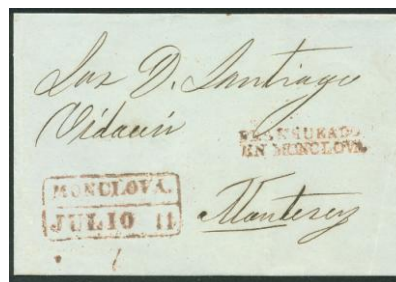 D. Santiago
Vidaurri
FRANQUEADO
EN MONCLOVA.
MONCLOVA.
JULIO 11
Monterey